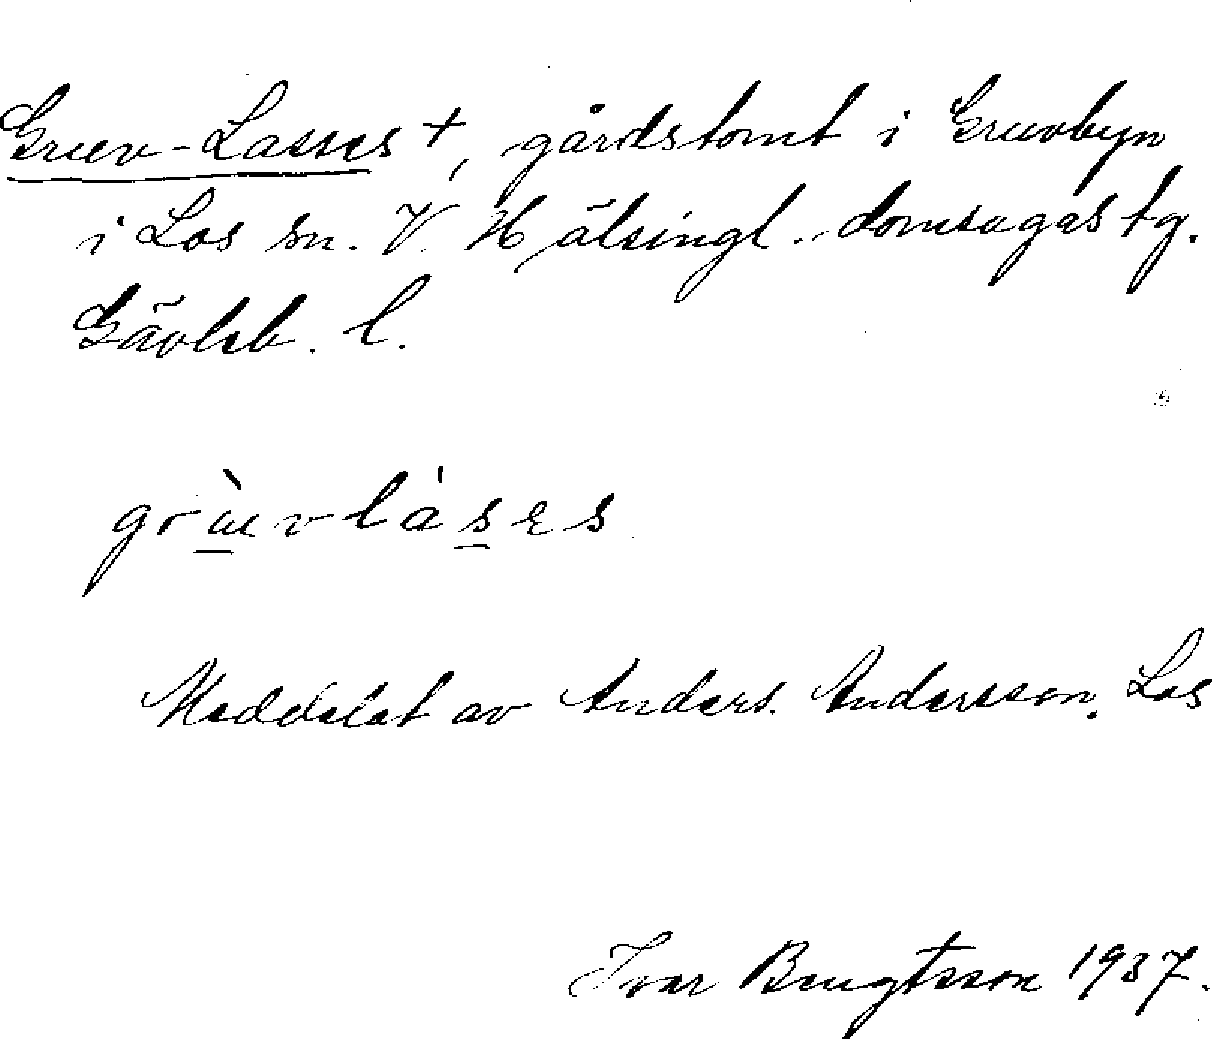 Gruv-Lasses +, gårdstomt i Gruvbyn
i Los sn. V. Hälsingl. domsagas tg.
Gävleb. l.
grùvlàses
Meddelat av Anders Andersson, Los
Ivar Bengtsson 1937.